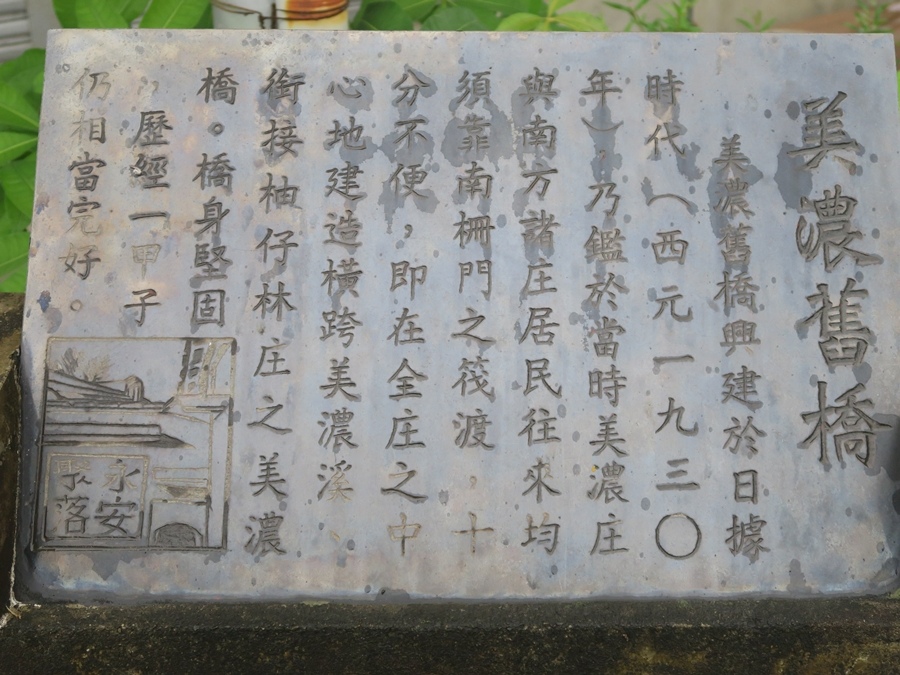 美濃舊橋
美濃舊橋興建於日據
時代（西元一九三〇
年），乃鑑於當時美濃庄
與南方諸庄居民往來均
須靠南柵門之筏渡，十
分不便，即在全庄之中
心地建造橫跨美濃溪、
銜接柚仔林庄之美濃
橋。橋身堅固
，歷經一甲子
仍相當完好。
永安
聚落